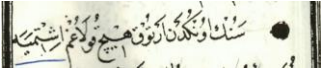 سنك اونكدن ارتوق هيچ قولاغم اشتميه